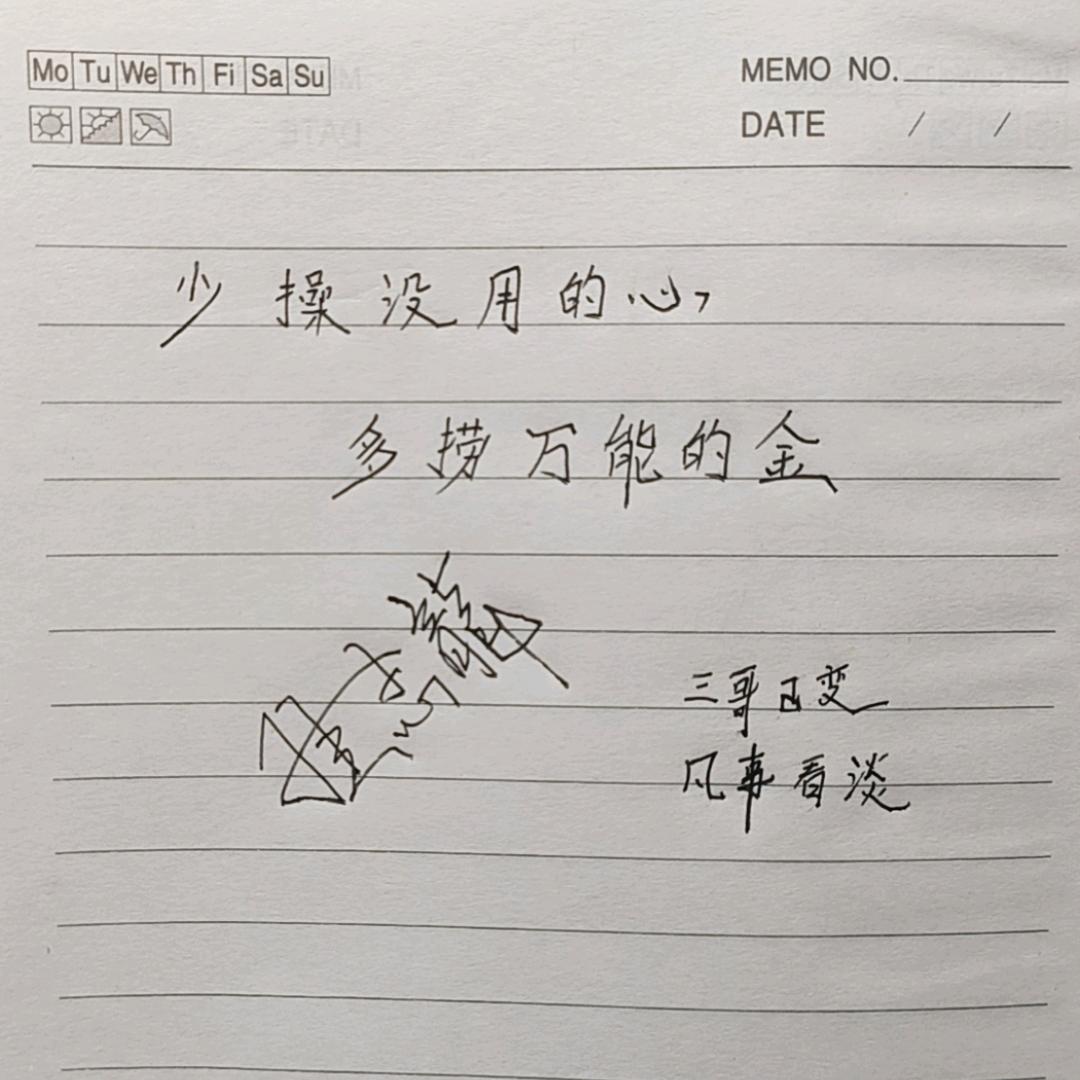 Mo Tu We Th Fi Sa Su
MEMO NO.
DATE / /
少操没用的心,
多捞万能的金
三哥已变
凡事看淡